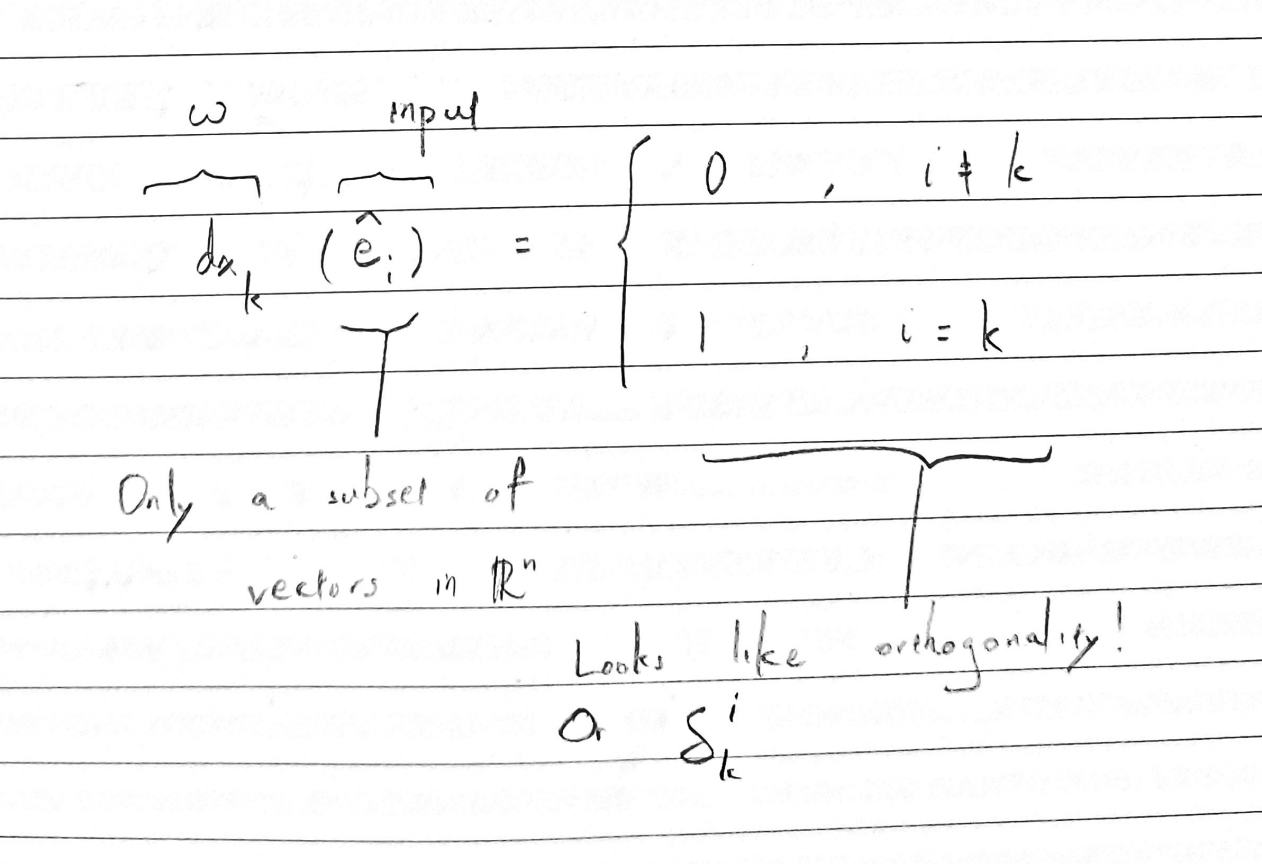 ω input
dx_k (ê_i) = { 0 , i ≠ k
1 , i = k
Only a subset of
vectors in ℝⁿ
Looks like orthogonality!
Or δ^i_k